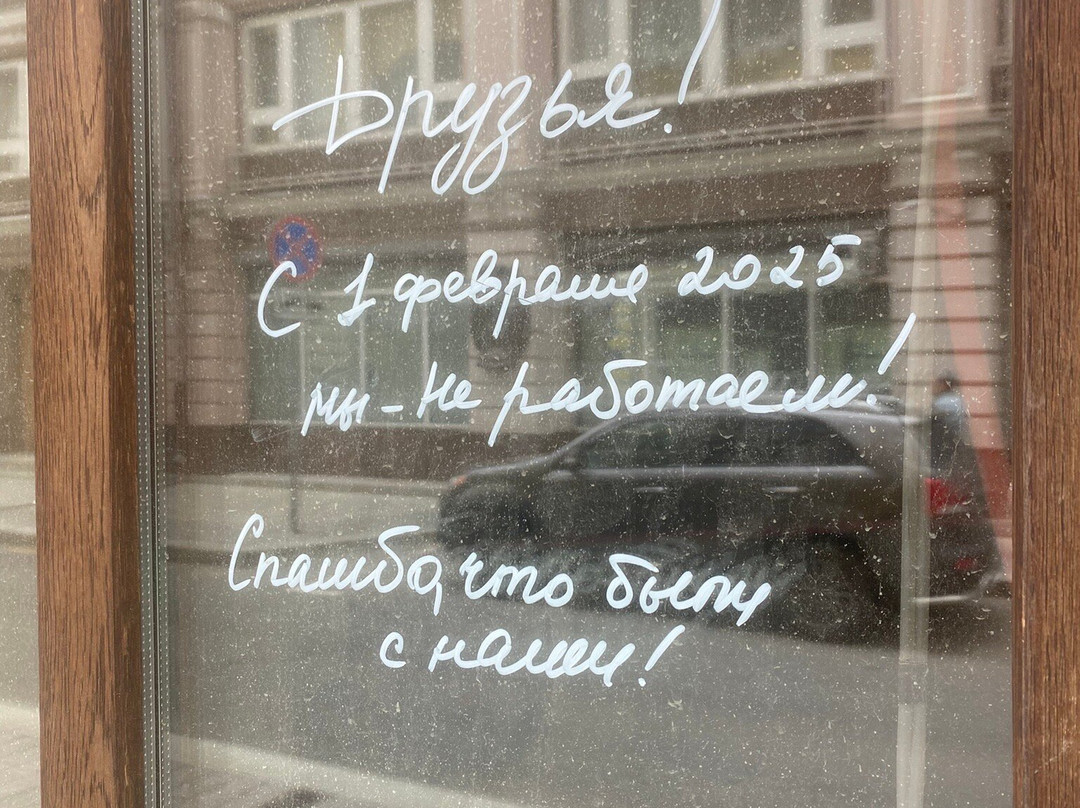 Друзья!
С 1 февраля 2025
мы - не работаем!
Спасибо, что были
с нами!